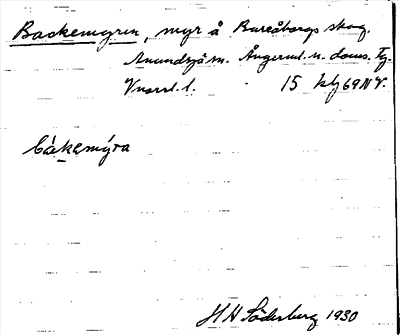 Backemyren, myr å Bureåborgs skog.
Anundsjö sn. Ångerml. n. doms. Fg.
Vnorrl. l. 15 klg 69 N V.
båkemýra
H H Söderberg 1930